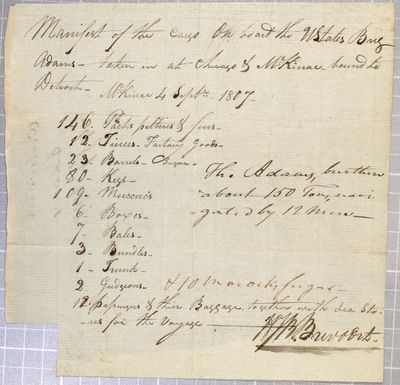 Manifest of the cargo On board the UStates Brig
Adams - taken in at Chicago & McKinac - bound to
Detroit - McKinac 4 Septr. 1807 -
146 - Packs peltries & furs -
12 - Tierces Factory goods -
23 - Barrels - Sugar -
80 - Kegs -
109 - Muccucks
6 - Boxes -
7 - Bales -
3 - Bundles -
1 - Trunk -
2 Gudgeons - & 10 Mococks, Sugar -
12 - passengers & their Baggage, together with Sea Sto-
res for the Voyage
The Adams, burthen
about 150 Tons, navi
gated by 12 Men -
H. B. Brevoort -